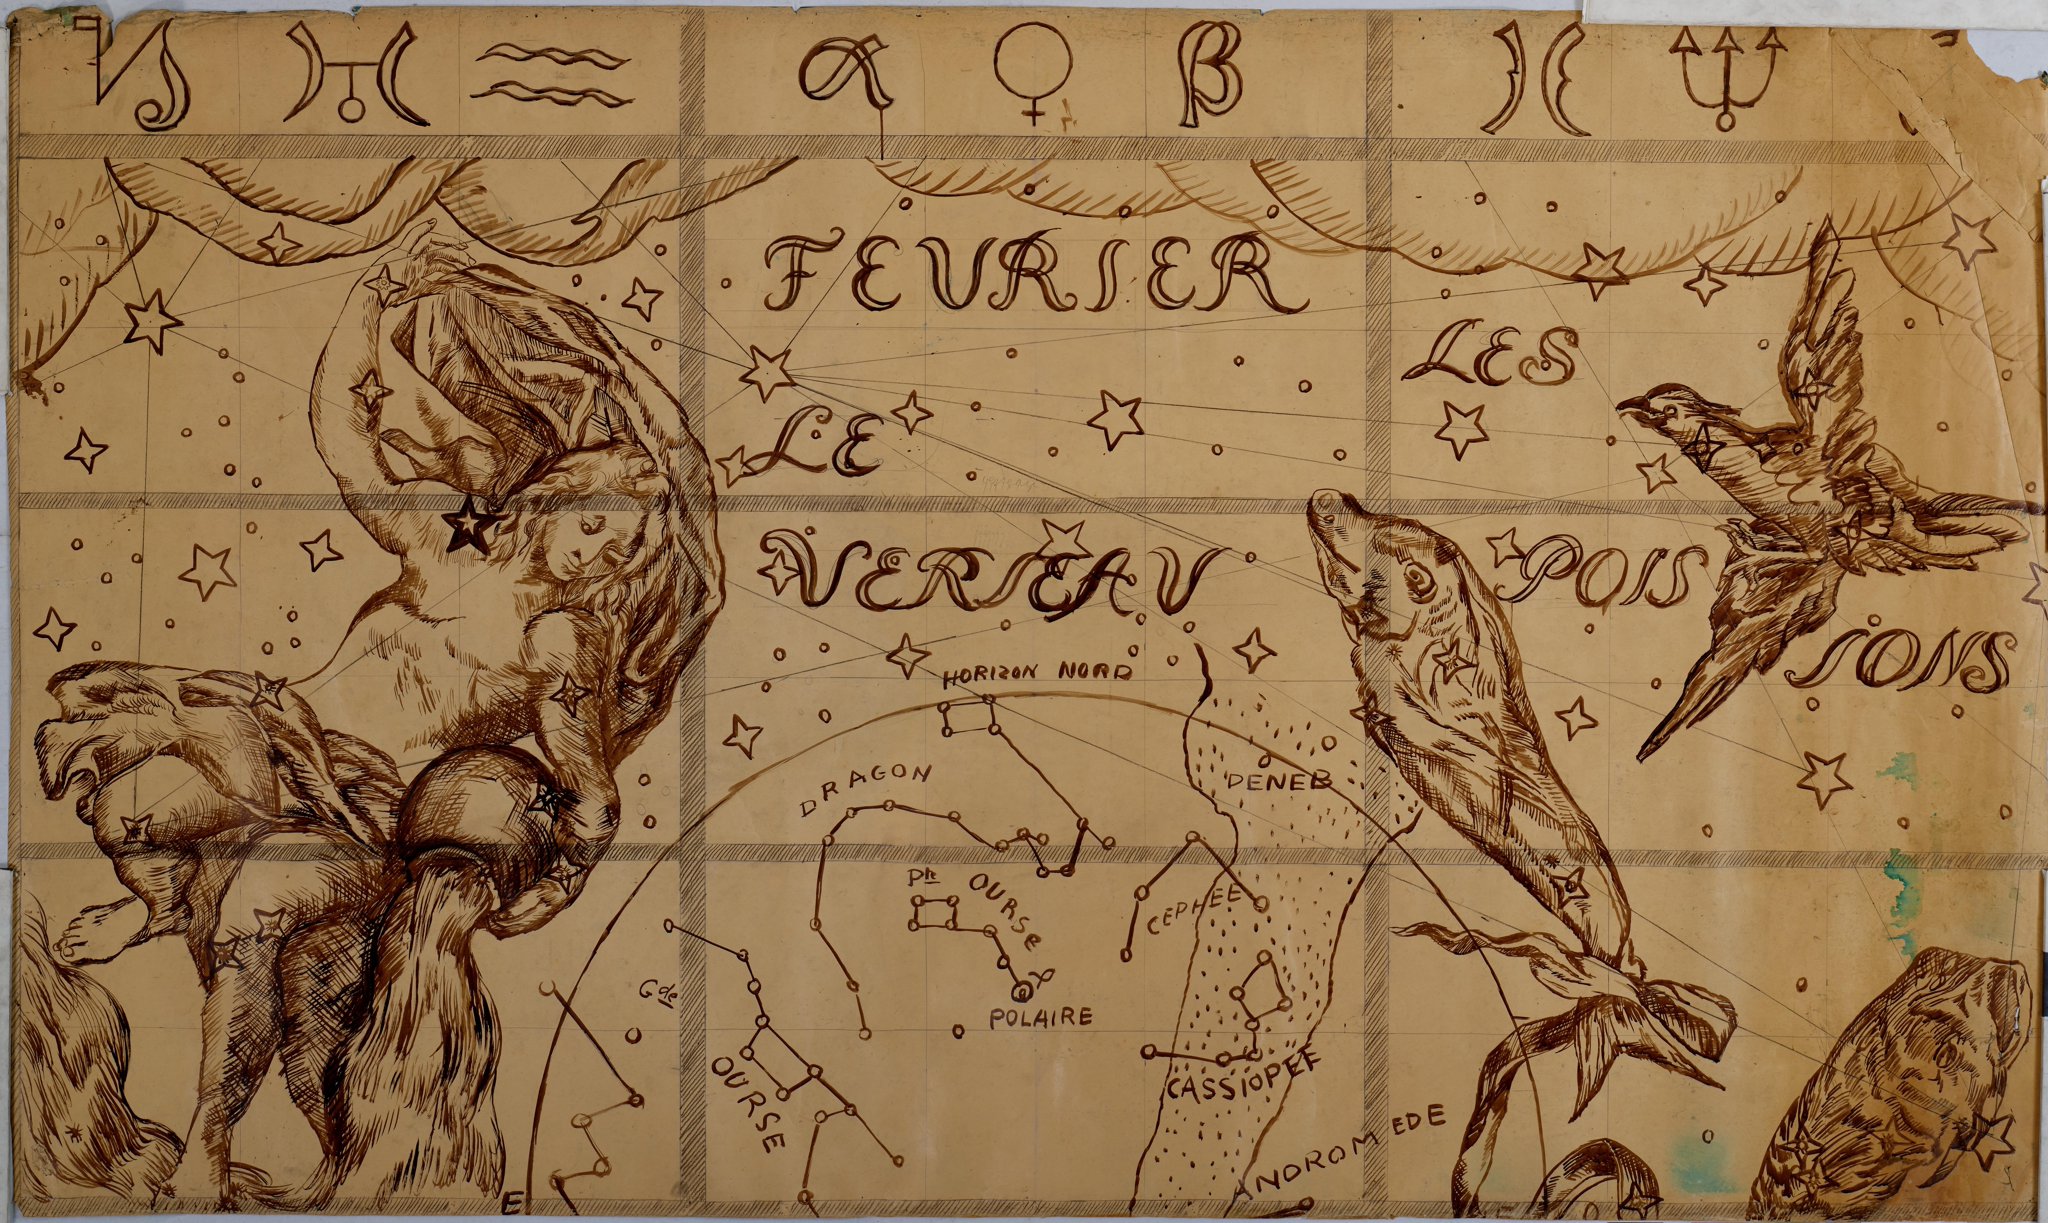 α β
FEVRIER
LE
VERSEAU
LES
POIS
SONS
HORIZON NORD
DRAGON
DENEB
Pte OURSE
CEPHEE
α
POLAIRE
Gde OURSE
CASSIOPEE
ANDROMEDE
E